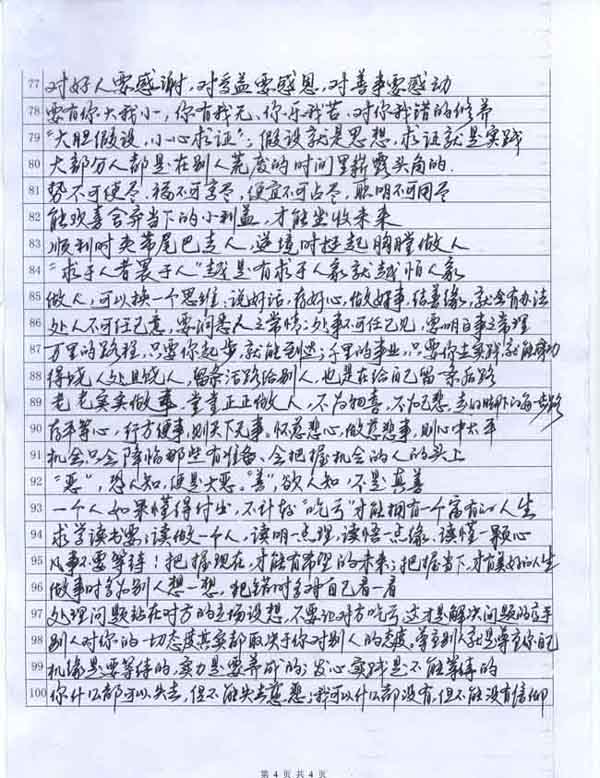 77 对好人要感谢，对受益要感恩，对善事要感动
78 要有你大我小，你有我无，你乐我苦，对你我错的修养
79 “大胆假设，小心求证”；假设就是思想，求证就是实践
80 大部分人都是在别人荒度的时间里崭露头角的．
81 势不可使尽．福不可享尽，便宜不可占尽，聪明不可用尽
82 能欢喜舍弃当下的小利益，才能坐收未来
83 顺利时夹着尾巴走人，逆境时挺起胸膛做人
84 “求于人者畏于人”越是有求于人家就越怕人家
85 做人，可以换一个思维：说好话，存好心，做好事，结善缘，就会有办法
86 处人不可任己意，要问悉人之常情；处事不可任己见，要明白事之常理
87 万里的路程，只要你起步，就能到达；千里的事业，只要你去实践，就能成功
88 得饶人处且饶人，留条活路给别人，也是在给自己留一条后路
89 老老实实做事，堂堂正正做人，不为物喜，不为己悲，走好脚下的每一步路
90 存平等心，行方便事，则天下无事，怀慈悲心，做慈悲事，则心中太平
91 机会只会降临那些有准备、会把握机会的人的头上
92 “恶”，恐人知，便是大恶。“善”，欲人知，不是真善
93 一个人如果懂得付出，不计较“吃亏”才能拥有一个富有的人生
94 求学读书要：读做一个人，读明一点理，读悟一点缘，读懂一颗心
95 凡事不要等待！把握现在，才能有希望的未来；把握当下，才有美好的人生
96 做事时多为别人想一想，犯错时多对自己看一看
97 处理问题站在对方的立场设想，不要让对方吃亏，这才是解决问题的高手
98 别人对你的一切态度其实都取决于你对别人的态度，尊重别人就是尊重你自己
99 机缘是要等待的，实力是要养成的；发心实践是不能等待的
100 你什么都可以失去，但不能失去慈悲；我可以什么都没有，但不能没有信仰
第 4 页 共 4 页